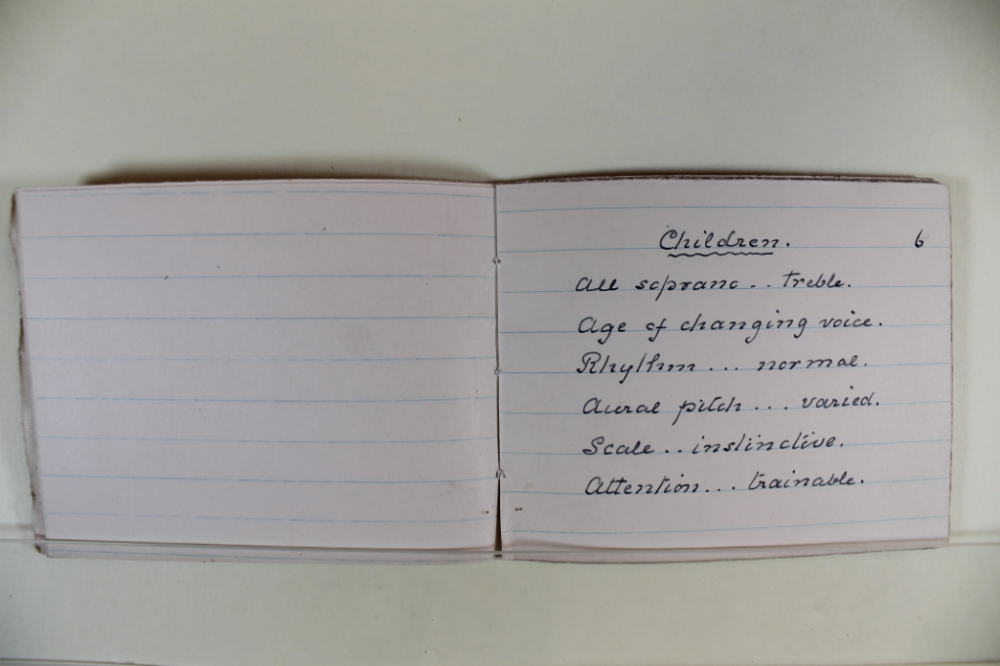 Children. 6
All soprano .. treble.
Age of changing voice.
Rhythm ... normal.
Aural pitch ... varied.
Scale .. instinctive.
Attention ... trainable.